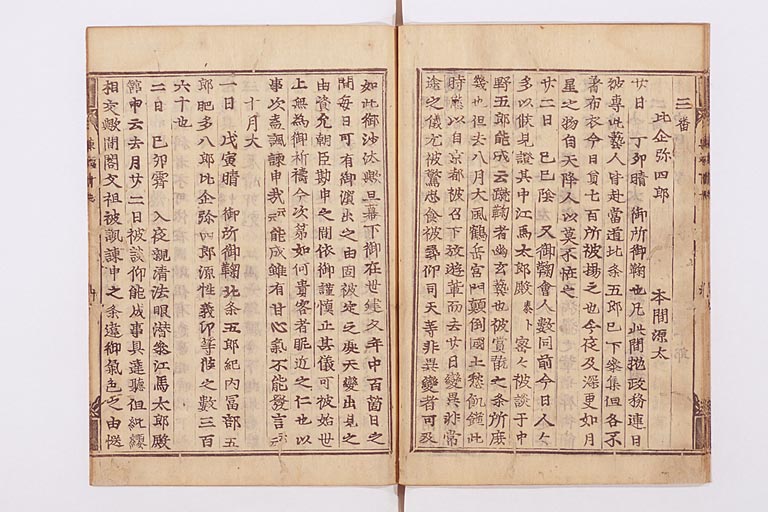 三番
比企弥四郎 本間源太
廿日 丁夘晴 御所御鞠也凡此間抛政務連日
被専此藝人皆赴當道北条五郎已下參集但各不
着布衣今日員七百所被揚之也今夜及深更如月
星之物自天降人以莫不恠之
廿二日 己巳陰 又御鞠會人数同前今日人々
多以候見證其中江馬太郎殿泰ト密々被談于中
野五郎能成云蹴鞠者幽玄藝也被賞翫之条所庶
幾也但去八月大風鶴岳宮門顛倒國土愁飢饉此
時態以自京都被召下放遊輩而去廿日變異非常
途之儀尤被驚思食被尋仰司天等非異變者可及
如此御沙汰歟且幕下御在世建久年中百箇日之
間毎日可有御濵出之由固被定之處天變出見之
由資允朝臣勘申之間依御謹慎止其儀可被始世
上無為御祈禱今次第如何貴客者昵近之仁也以
事次盍諷諫申哉云々能成雖有甘心氣不能發言云々
十月大
一日 戊寅晴 御所御鞠北条五郎紀内冨部五
郎肥多八郎比企弥四郎源性義印等候之数三百
六十也
二日 己夘霽 入夜親清法眼潜參江馬太郎殿
舘申云去月廿二日被談仰能成事具達聽但紕繆
相交歟間閣父祖被諷諫申之条違御氣色之由